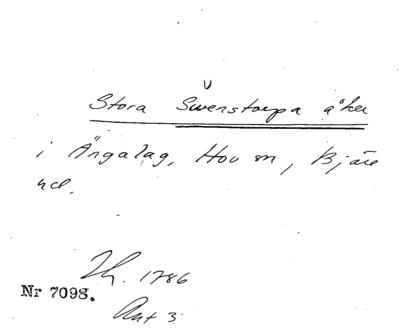 v
Stora Swenstorpa åker
i Ängalag, Hov sn, Bjäre
hd.
Lh. 1786
Nr 7098.
Akt 3